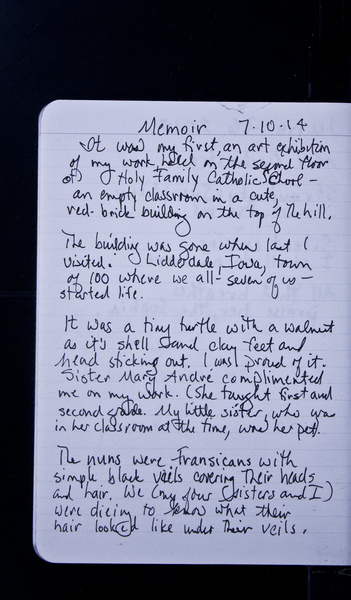 Memoir 7.10.14
It was my first, an art exhibition
of my work, held on the second floor
of Holy Family Catholic School –
an empty classroom in a cute,
red-brick building on the top of the hill.
The building was gone when last I
visited. Lidderdale, Iowa, town
of 100 where we all – seven of us –
started life.
It was a tiny turtle with a walnut
as it's shell and clay feet and
head sticking out. I was proud of it.
Sister Mary Andre complimented
me on my work. (She taught first and
second grade. My little sister, who was
in her classroom at the time, was her pet).
The nuns were Fransicans with
simple black veils covering their heads
and hair. We (my four sisters and I)
were dieing to know what their
hair looked like under their veils.